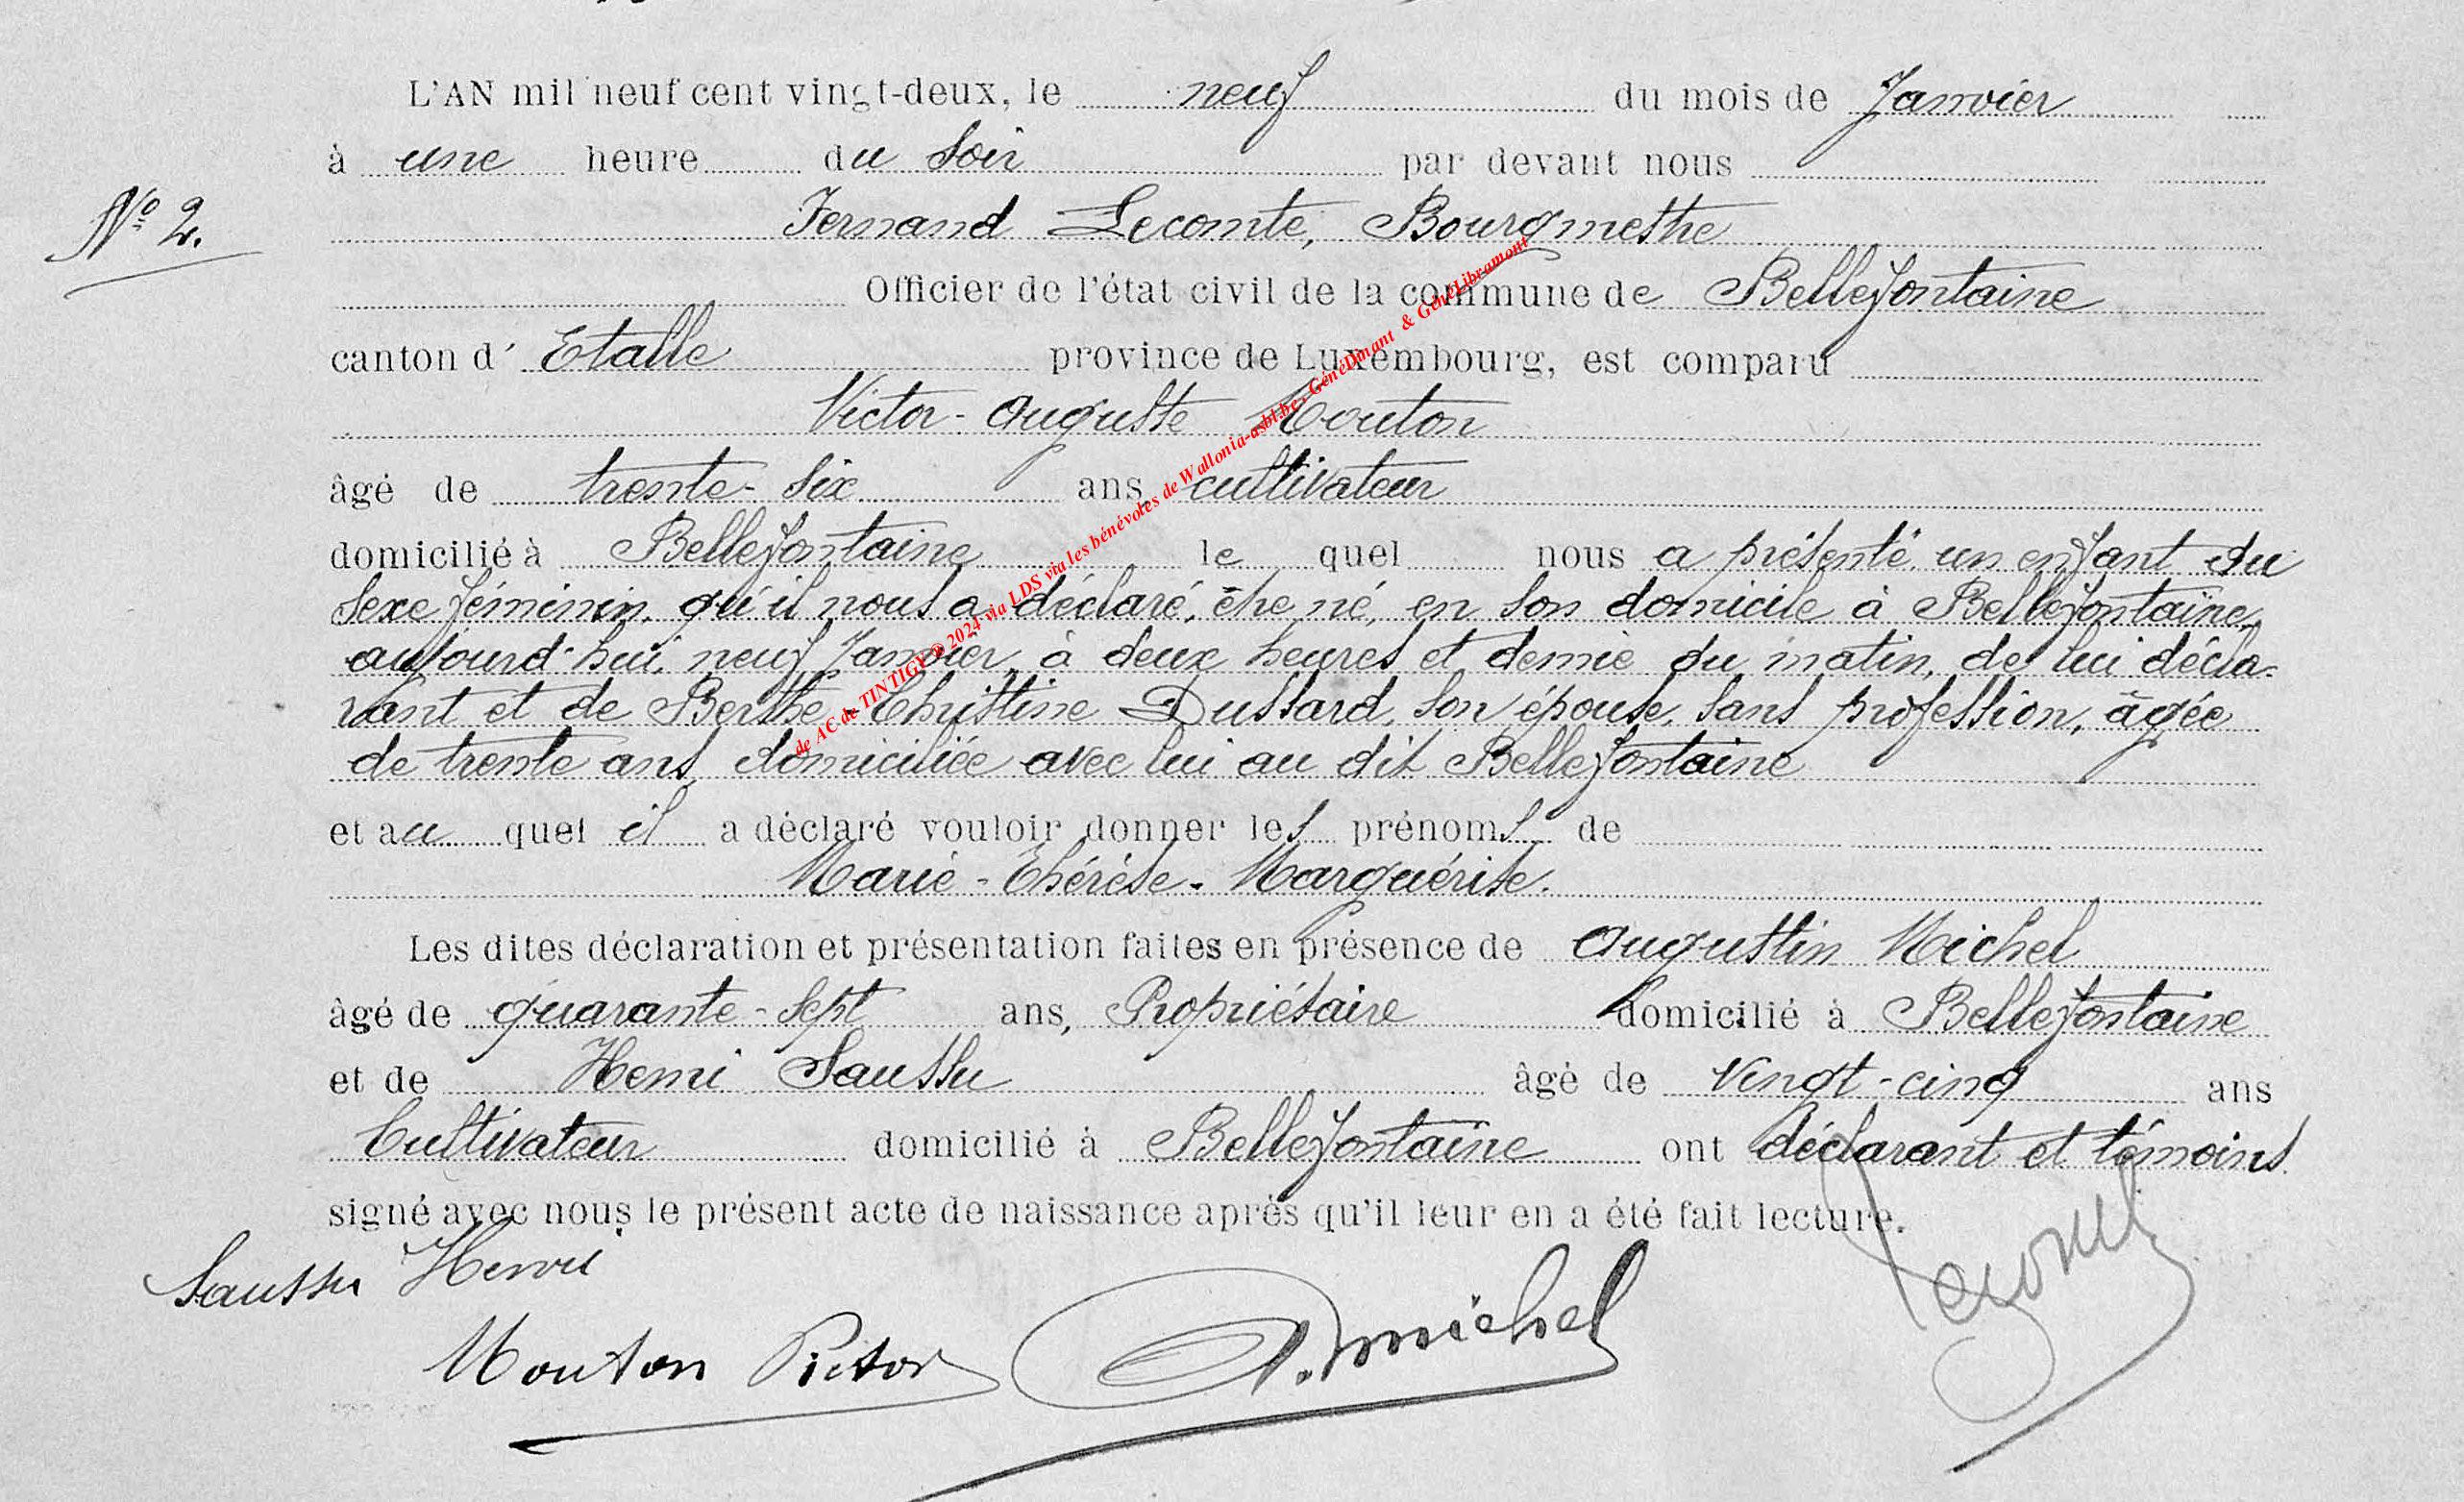 L'AN mil neuf cent vingt-deux, le neuf du mois de Janvier
à une heure du soir par devant nous
N° 2.
Fernand Lecomte, Bourgmestre
Officier de l'état civil de la commune de Bellefontaine
canton d' Etalle province de Luxembourg, est comparu
Victor-Auguste Mouton
âgé de trente-six ans, cultivateur
domicilié à Bellefontaine le quel nous a présenté un enfant du
sexe féminin, qu'il nous a déclaré, être né, en son domicile à Bellefontaine,
aujourd'hui, neuf Janvier, à deux heures et demie du matin, de lui décla-
rant et de Berthe Christine Dussard, son épouse, sans profession, âgée
de trente ans, domiciliée avec lui au dit Bellefontaine
et au quel il a déclaré vouloir donner les prénoms de
Marie-Thérèse-Marguérite.
Les dites déclaration et présentation faites en présence de Augustin Michel
âgé de quarante-sept ans, Propriétaire domicilié à Bellefontaine
et de Henri Saussu âgé de vingt-cinq ans
Cultivateur domicilié à Bellefontaine ont déclarant et témoins
signé avec nous le présent acte de naissance après qu'il leur en a été fait lecture.
Saussu Henri
Mouton Victor A. Michel Lecomte
de AC de TINTIGY © 2024 via LDS via les bénévoles de Wallonia-asbl.be, GénéDinant & GénéLibramont